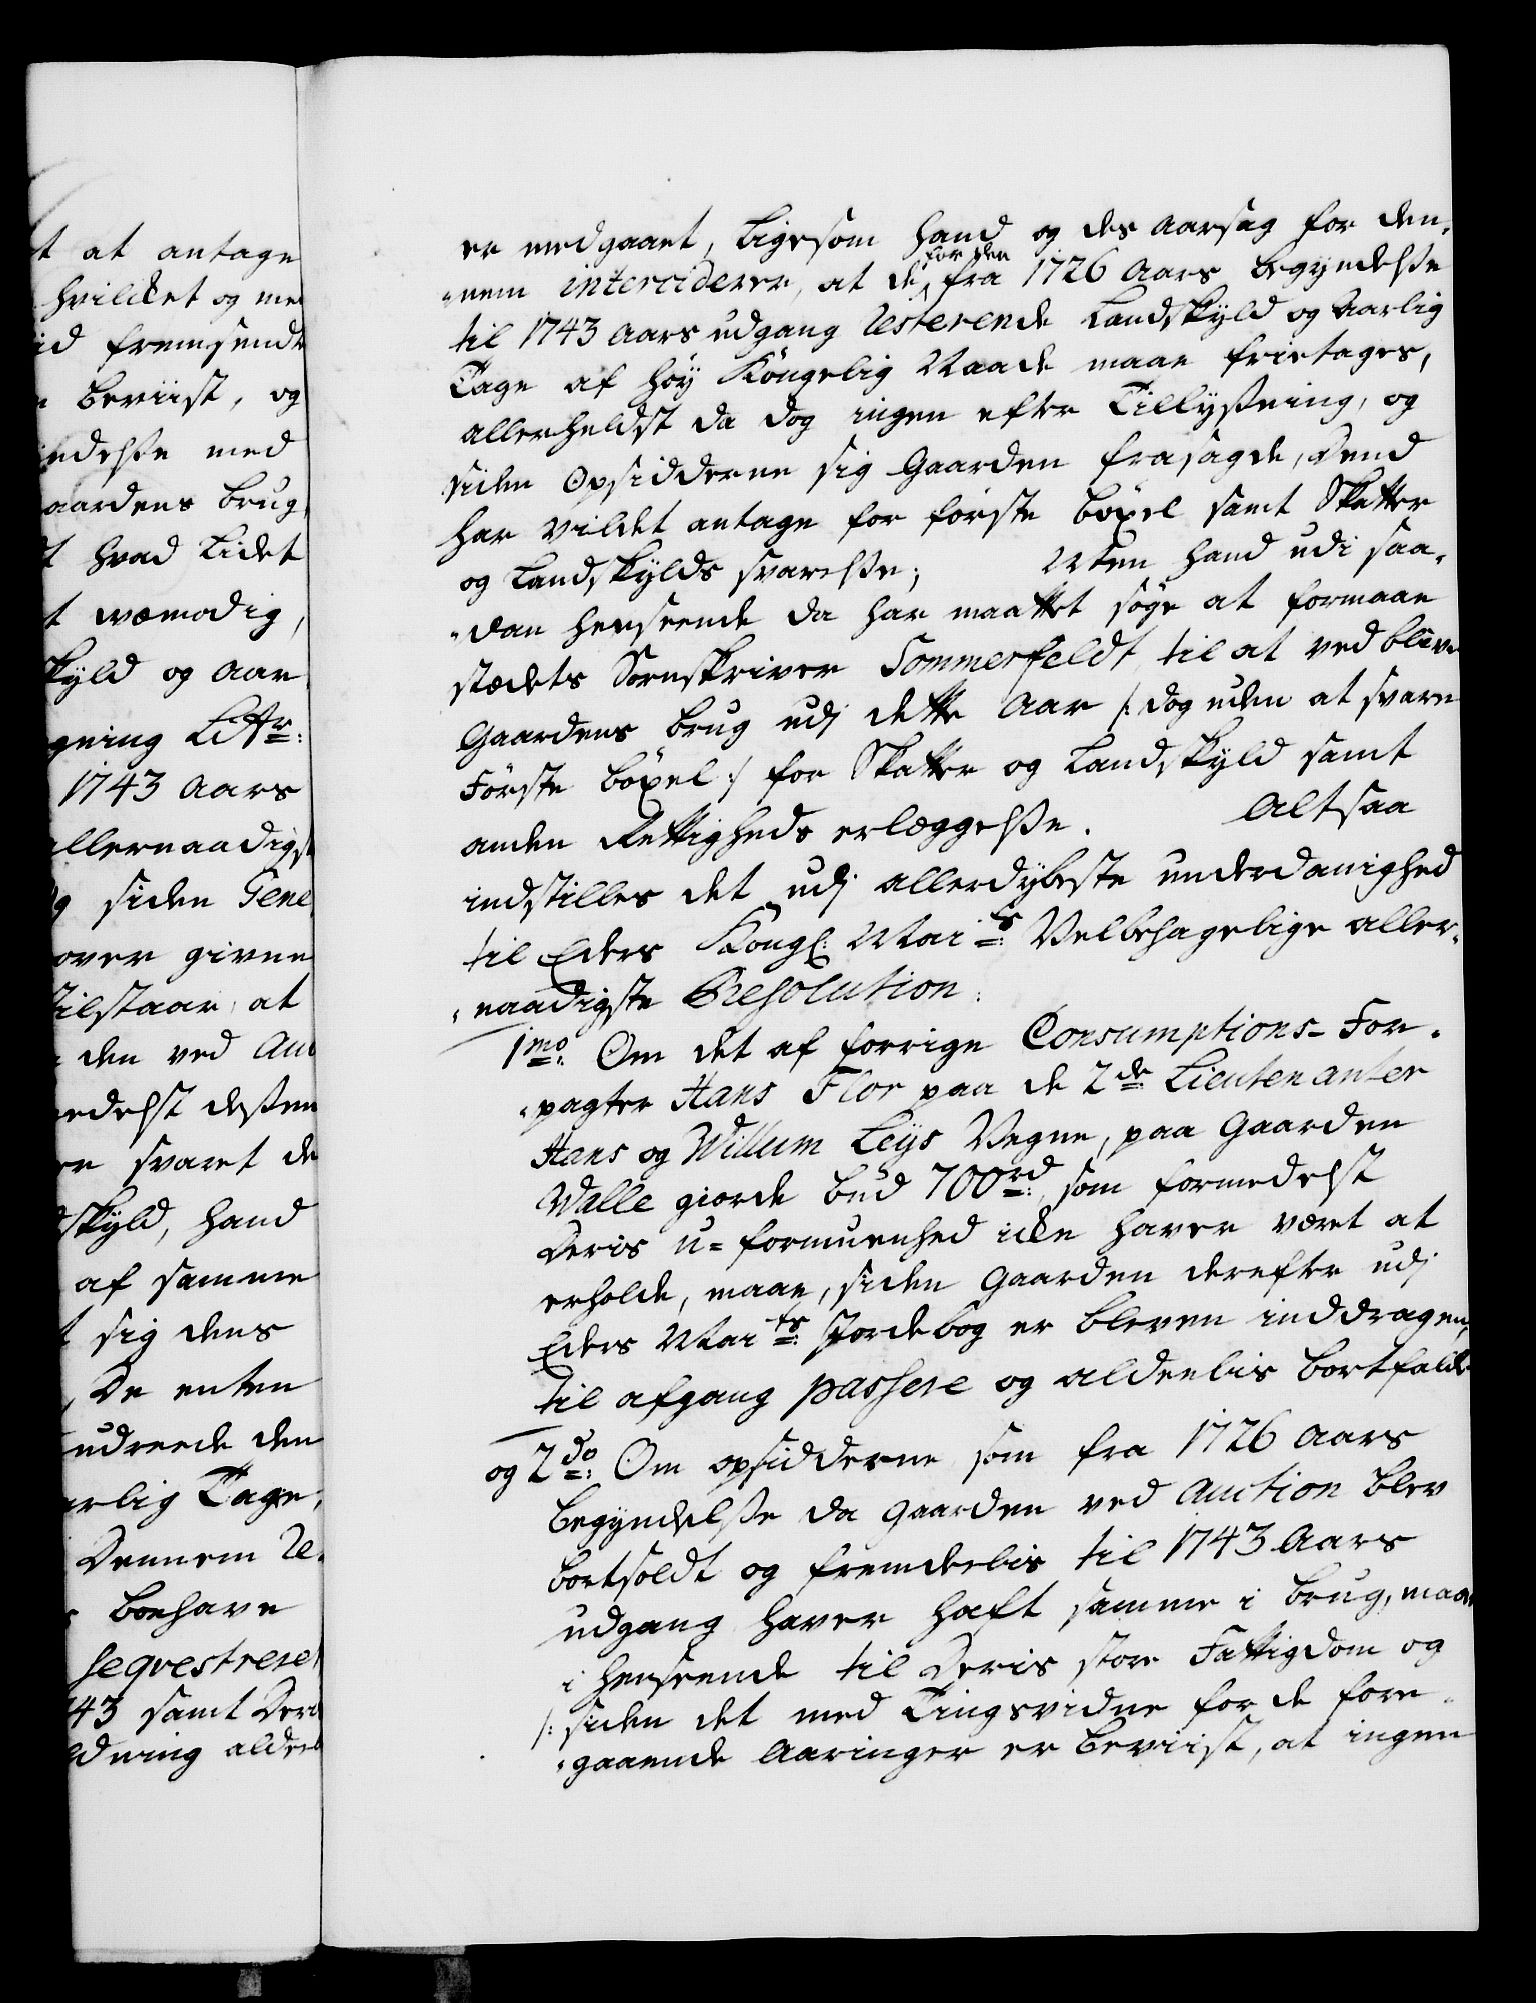 t at antage
hvilcket og med
id fremsendte
beviist, og
ndelsse med
aardens brug,
t hvad Lidet
t wæmodig,
kyld og aar
gning Litr:
1743 Aars
allernaadigst
og siden Gene
over givne
tilstaar, at
den ved Auc
medelst dessen
er svaret de
dskyld, hand
af samme
t sig dens
De enten
udreede den
arlig Tage,
Dennem Re-
boehave
seqvestreret
43 samt Deris
dning alde
er medgaaet, Ligesom hand og des aarsag for den-
-nem intercederer, at de for den fra 1726 Aars begyndelsse
til 1743 Aars udgang Resterende Landskyld og Aarlig
Tage af høy Kongelig Naade maae frietages,
allerheldst da dog ingen efter Tillyssning, og
siden Opsidderne sig Gaarden frasagde, dend
har vildet antage for første böxel samt Skatter
og Landskylds svarelsse; Men hand udi saa-
-dan henseende da har maattet søge at formaae
stedets Sorenskriver Sommerfeldt, til at vedblive
Gaardens brug udj dette Aar /: dog uden at svare
Første böxel :/ for Skatter og Landskyld samt
anden Rettigheds erlæggelsse. Altsaa
indstilles det udj allerdybeste underdanighed
til Eders Kongl: Mai ts: Velbehagelige aller-
-naadigste Resolution:
1mo: Om det af forrige Consumptions-For-
-pagter Hans Flor paa de 2de Lieutenanter
Hans og Willum Leys Vegne, paa Gaarden
Walle giorde bud 700 rd:, som formedelst
Deris u=formuenhed icke haver været at
erholde, maae, siden Gaarden derefter udj
Eders Mai ts: Jordebog er bleven inddragen,
til afgang passere og aldeelis bortfalde
og 2do: Om opsidderne som fra 1726 Aars
begyndelsse da Gaarden ved Auction blev
bortsoldt og fremdeelis til 1743 Aars
udgang haver haft samme i brug, maae
i henseende til Deris store Fattigdom og
/: siden det med Tingsvidne for de fore-
-gaaende Aaringer er beviist, at ingen